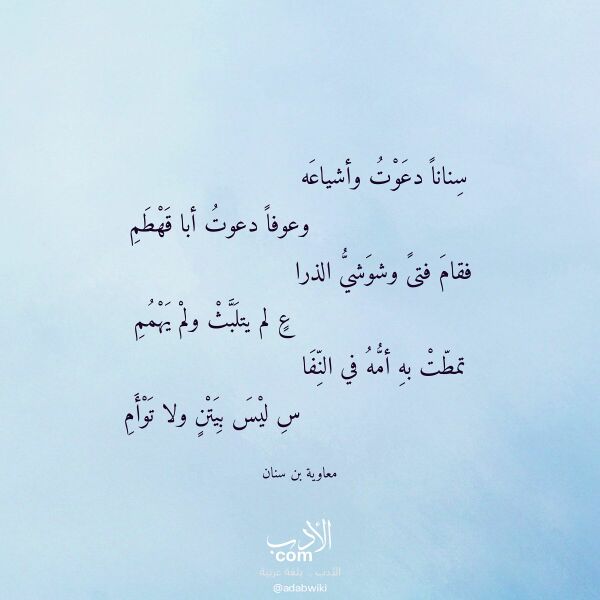 سِناناً دعَوْتُ وأشياعَه
وعوفاً دعوتُ أبا قَهْطَمِ
فقامَ فتىً وشوَشيُّ الذرا
عِ لم يتلَبَّثْ ولمْ يَهْمُمِ
تمطّتْ بهِ أمُّهُ في النِّفَا
سِ ليْسَ بِيَتْنٍ ولا تَوْأَمِ
معاوية بن سنان
الأدب
com
الأدب .. بلغة عربية
@adabwiki